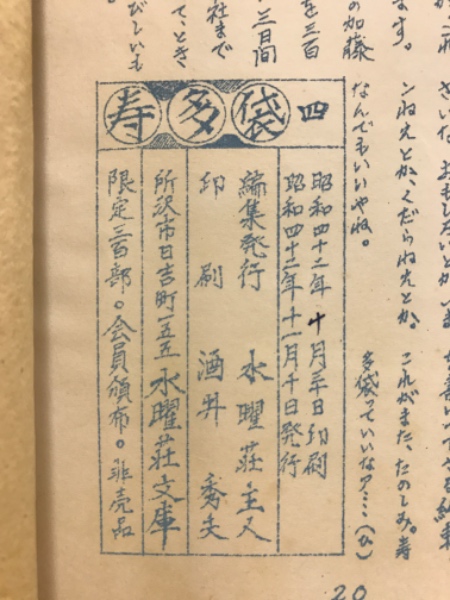 ます。
の加藤
を三百
三日間
社まで
て、とき
びしいも
ンねえとか、くだらねえとか。
なんでもいいやね。
これがまた、たのしみ。寿
多袋っていいなァ……(ひ)
寿多袋 四
昭和四十二年 十月三十日印刷
昭和四十二年十一月十日発行
編集発行 水曜荘主人
印刷 酒井秀夫
所沢市日吉町一五五 水曜荘文庫
限定三百部。会員頒布。非売品
20